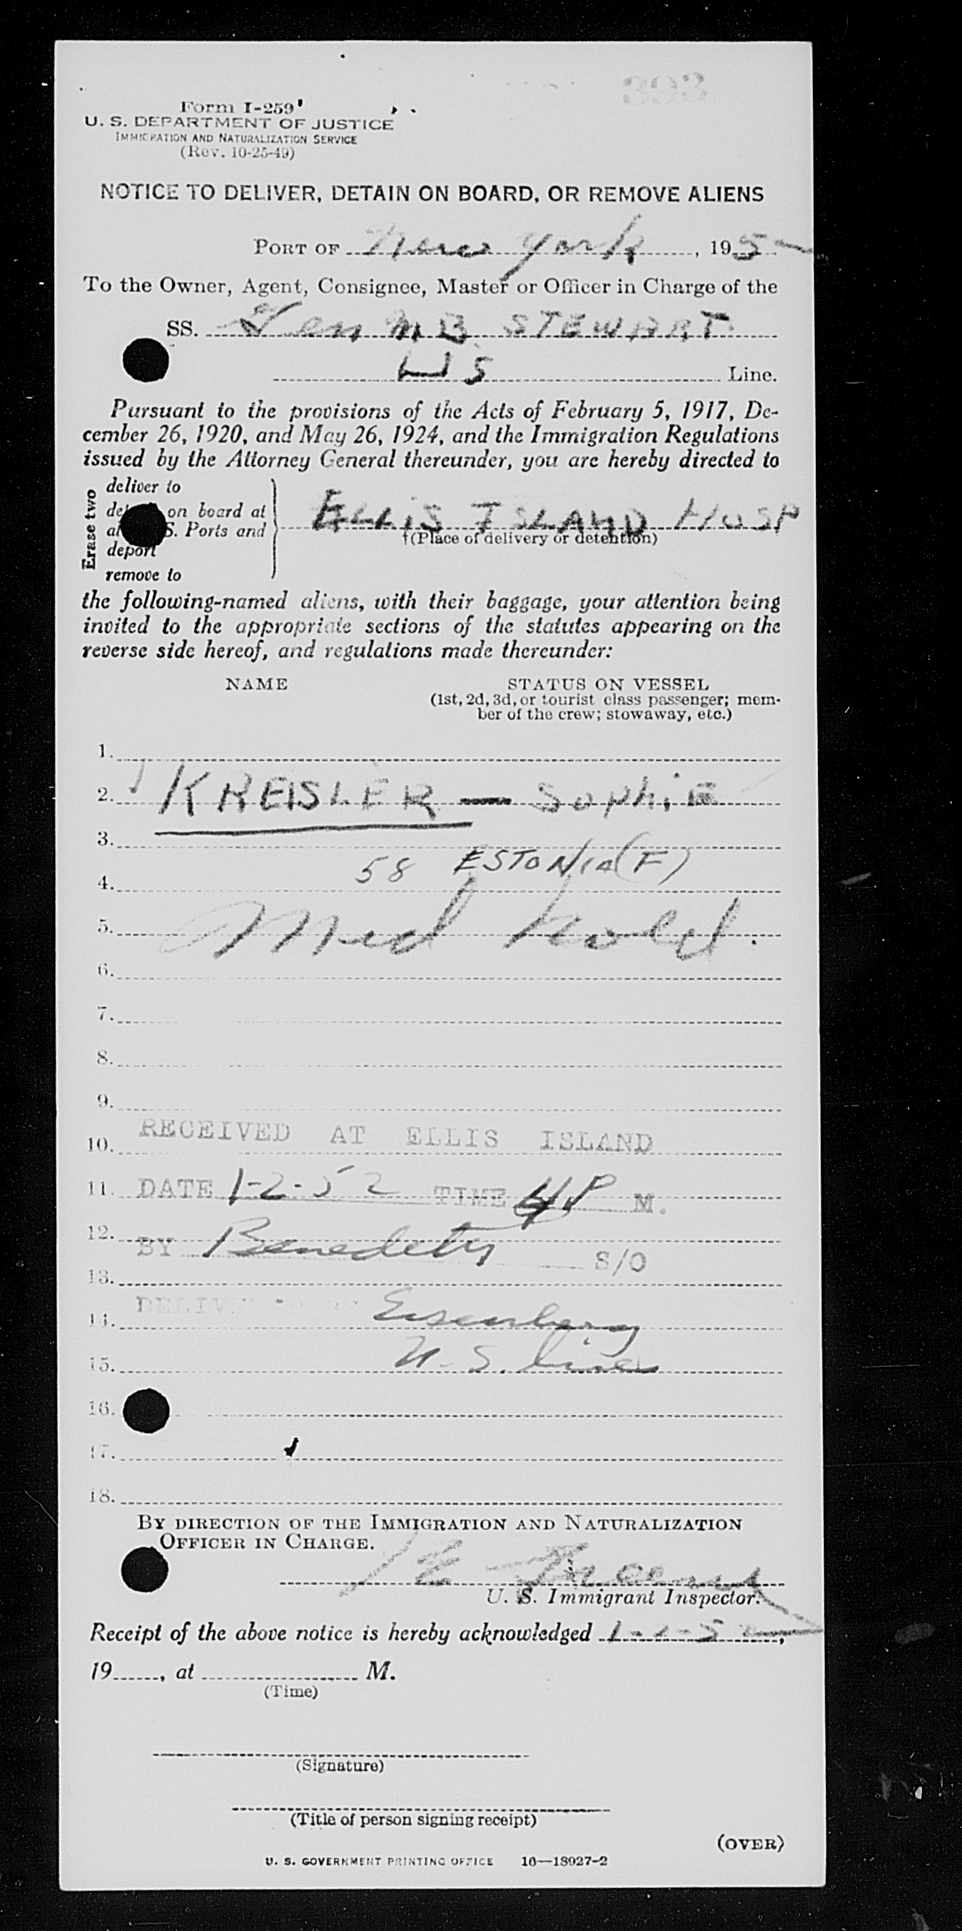 393
Form I-259
U. S. DEPARTMENT OF JUSTICE
IMMIGRATION AND NATURALIZATION SERVICE
(Rev. 10-25-49)
NOTICE TO DELIVER, DETAIN ON BOARD, OR REMOVE ALIENS
PORT OF New York, 1952
To the Owner, Agent, Consignee, Master or Officer in Charge of the
SS. Gen M B STEWART
US Line.
Pursuant to the provisions of the Acts of February 5, 1917, De-
cember 26, 1920, and May 26, 1924, and the Immigration Regulations
issued by the Attorney General thereunder, you are hereby directed to
Erase two
deliver to
on board at
S. Ports and
deport
remove to
ELLIS ISLAND HOSP
(Place of delivery or detention)
the following-named aliens, with their baggage, your attention being
invited to the appropriate sections of the statutes appearing on the
reverse side hereof, and regulations made thereunder:
NAME STATUS ON VESSEL
(1st, 2d, 3d, or tourist class passenger; mem-
ber of the crew; stowaway, etc.)
1.
2. KREISLER — SOPHIE
3.
58 ESTONIA (F)
4.
5. Med hold.
6.
7.
8.
9.
10. RECEIVED AT ELLIS ISLAND
11. DATE 1-2-52 TIME 4 P M.
12.
BY Benedetty S/O
13.
14. Eisenberg
15. U.S. Lines
16.
17.
18.
BY DIRECTION OF THE IMMIGRATION AND NATURALIZATION
OFFICER IN CHARGE.
U. S. Immigrant Inspector.
Receipt of the above notice is hereby acknowledged 1-2-52,
19, at M.
(Time)
(Signature)
(Title of person signing receipt)
(OVER)
U. S. GOVERNMENT PRINTING OFFICE 16—18927-2